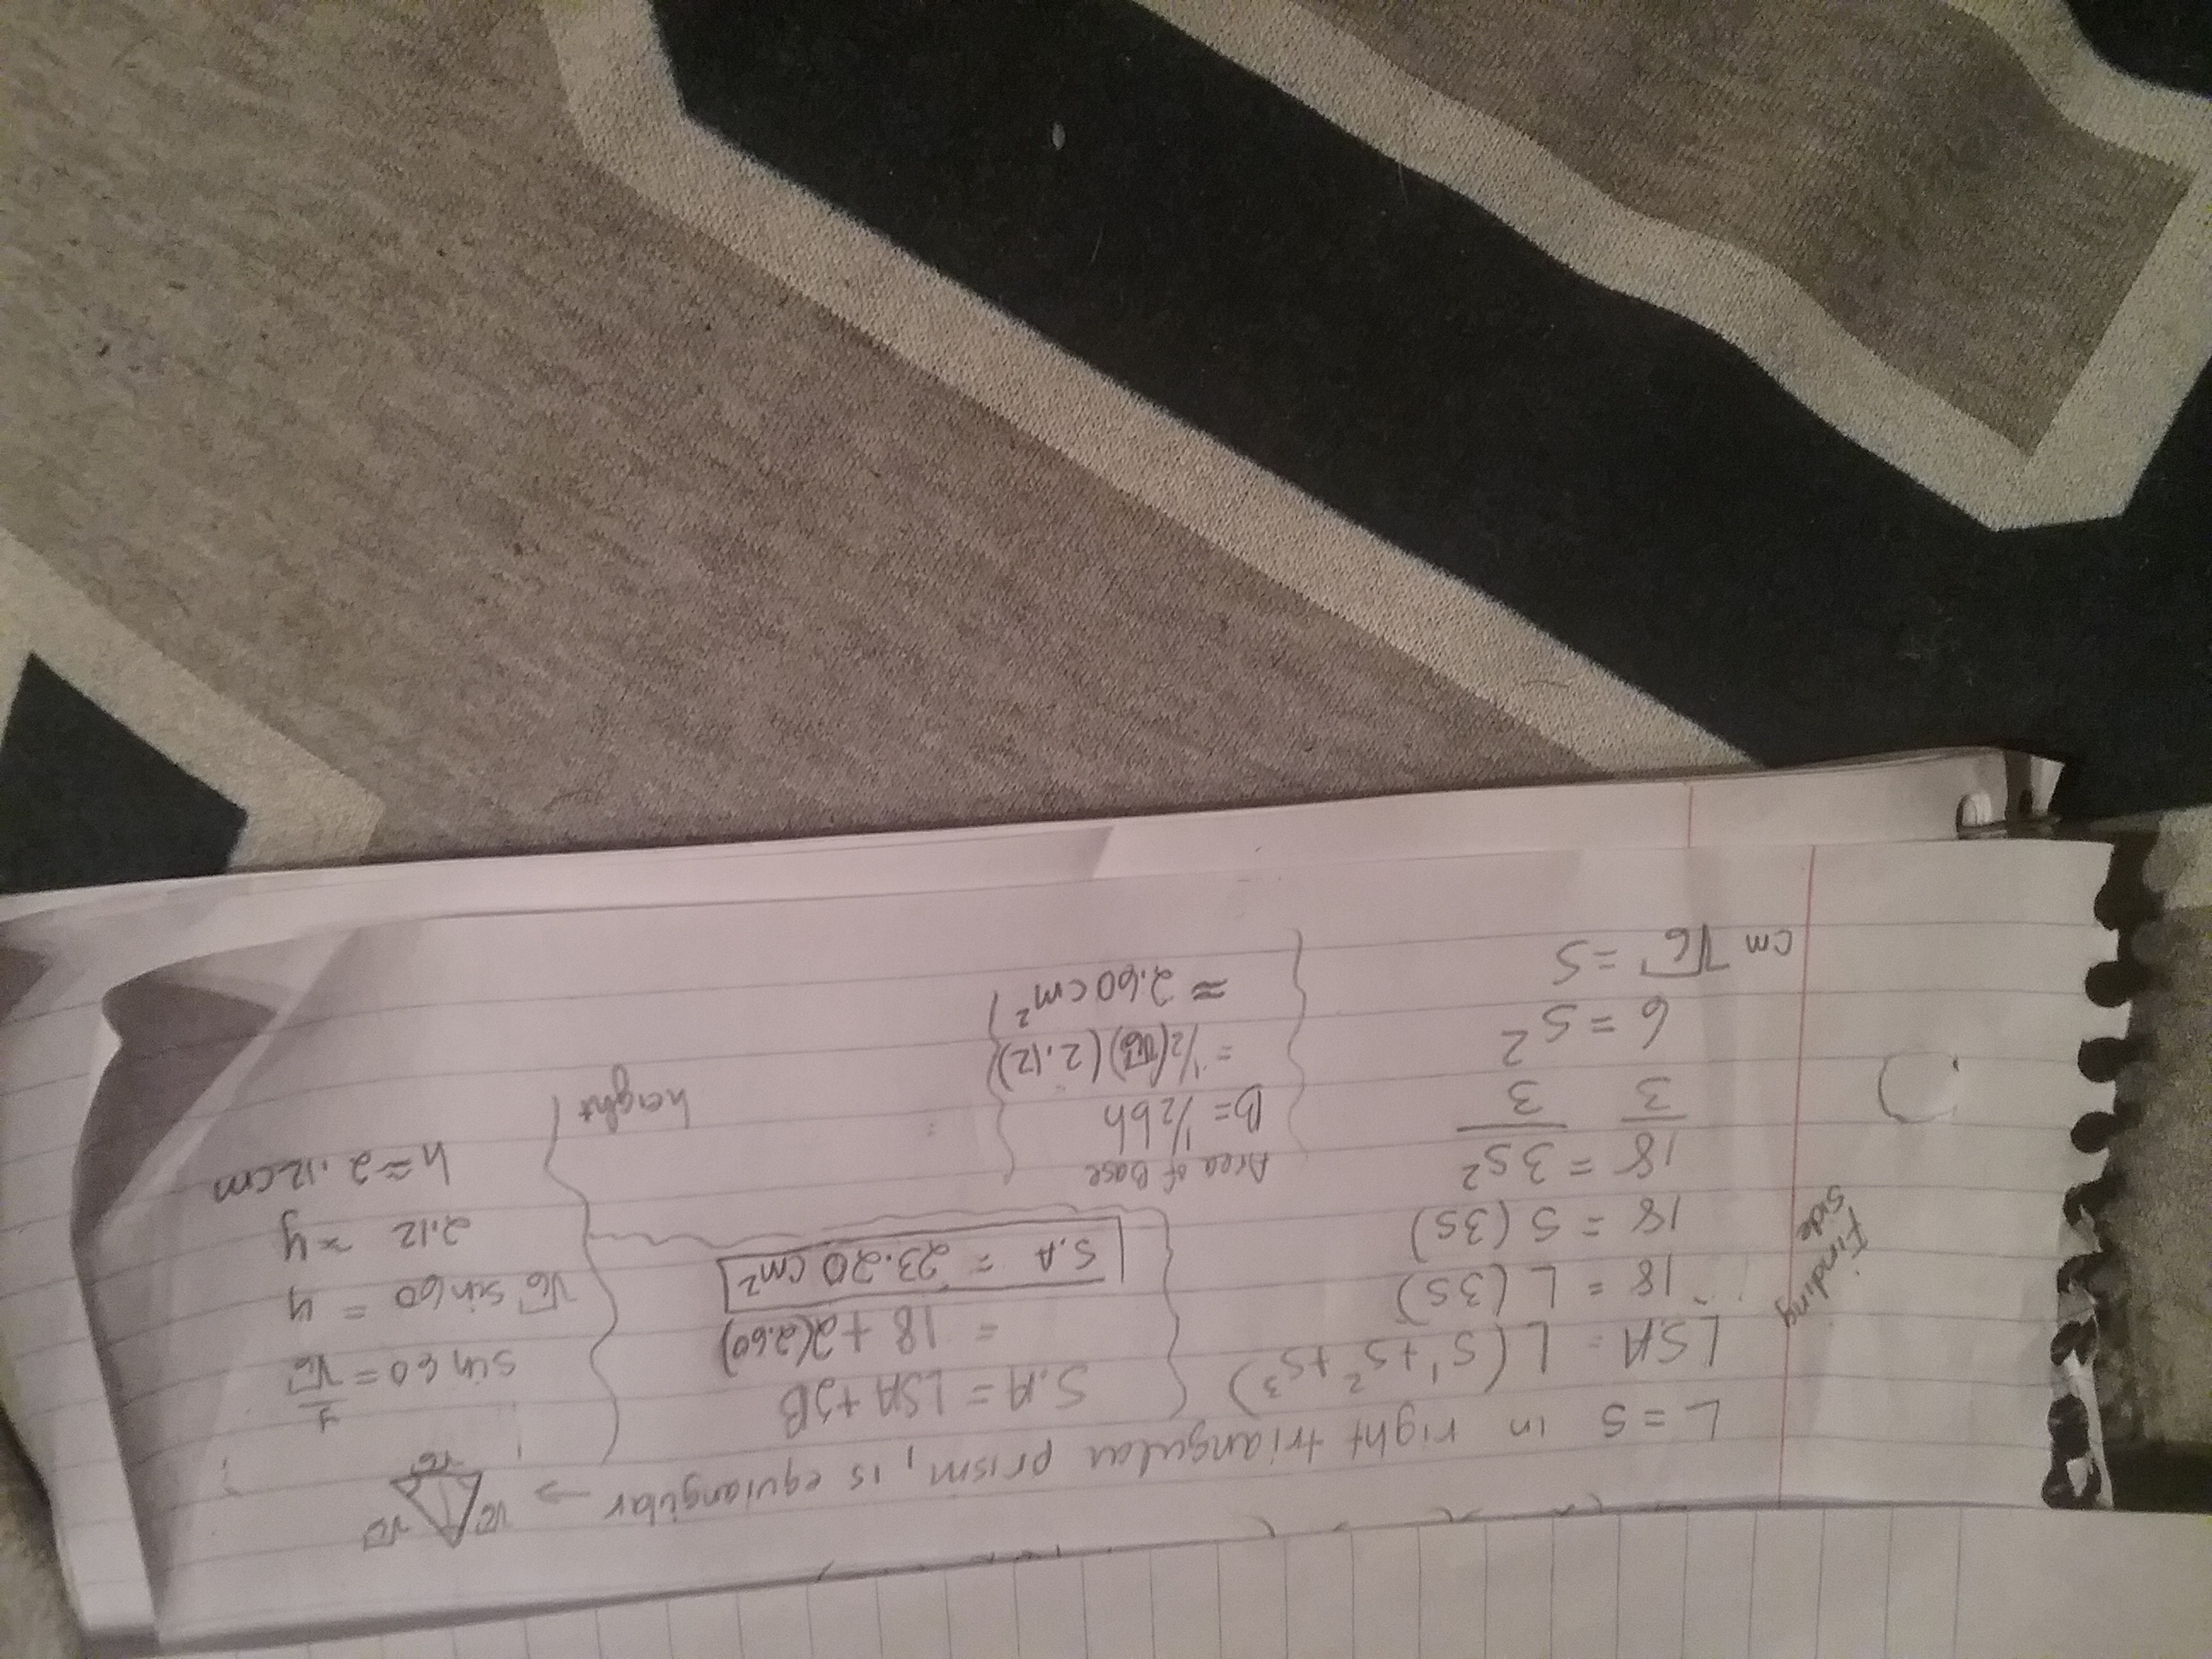 L = S in right triangular prism, is equiangular → √6 √6 √6
LSA = L (S¹+S²+S³)
18 = L (3S)
18 = S (3S)
18 = 3S²
3 3
6 = S²
cm √6 = S
Finding
side
S.A = LSA + 2B
= 18 + 2(2.60)
S.A = 23.20 cm²
Area of Base
B = ½ bh
= ½(√6)(2.12)
≈ 2.60 cm²
sin 60 = y/√6
√6 sin 60 = y
2.12 ≈ y
h ≈ 2.12 cm
height